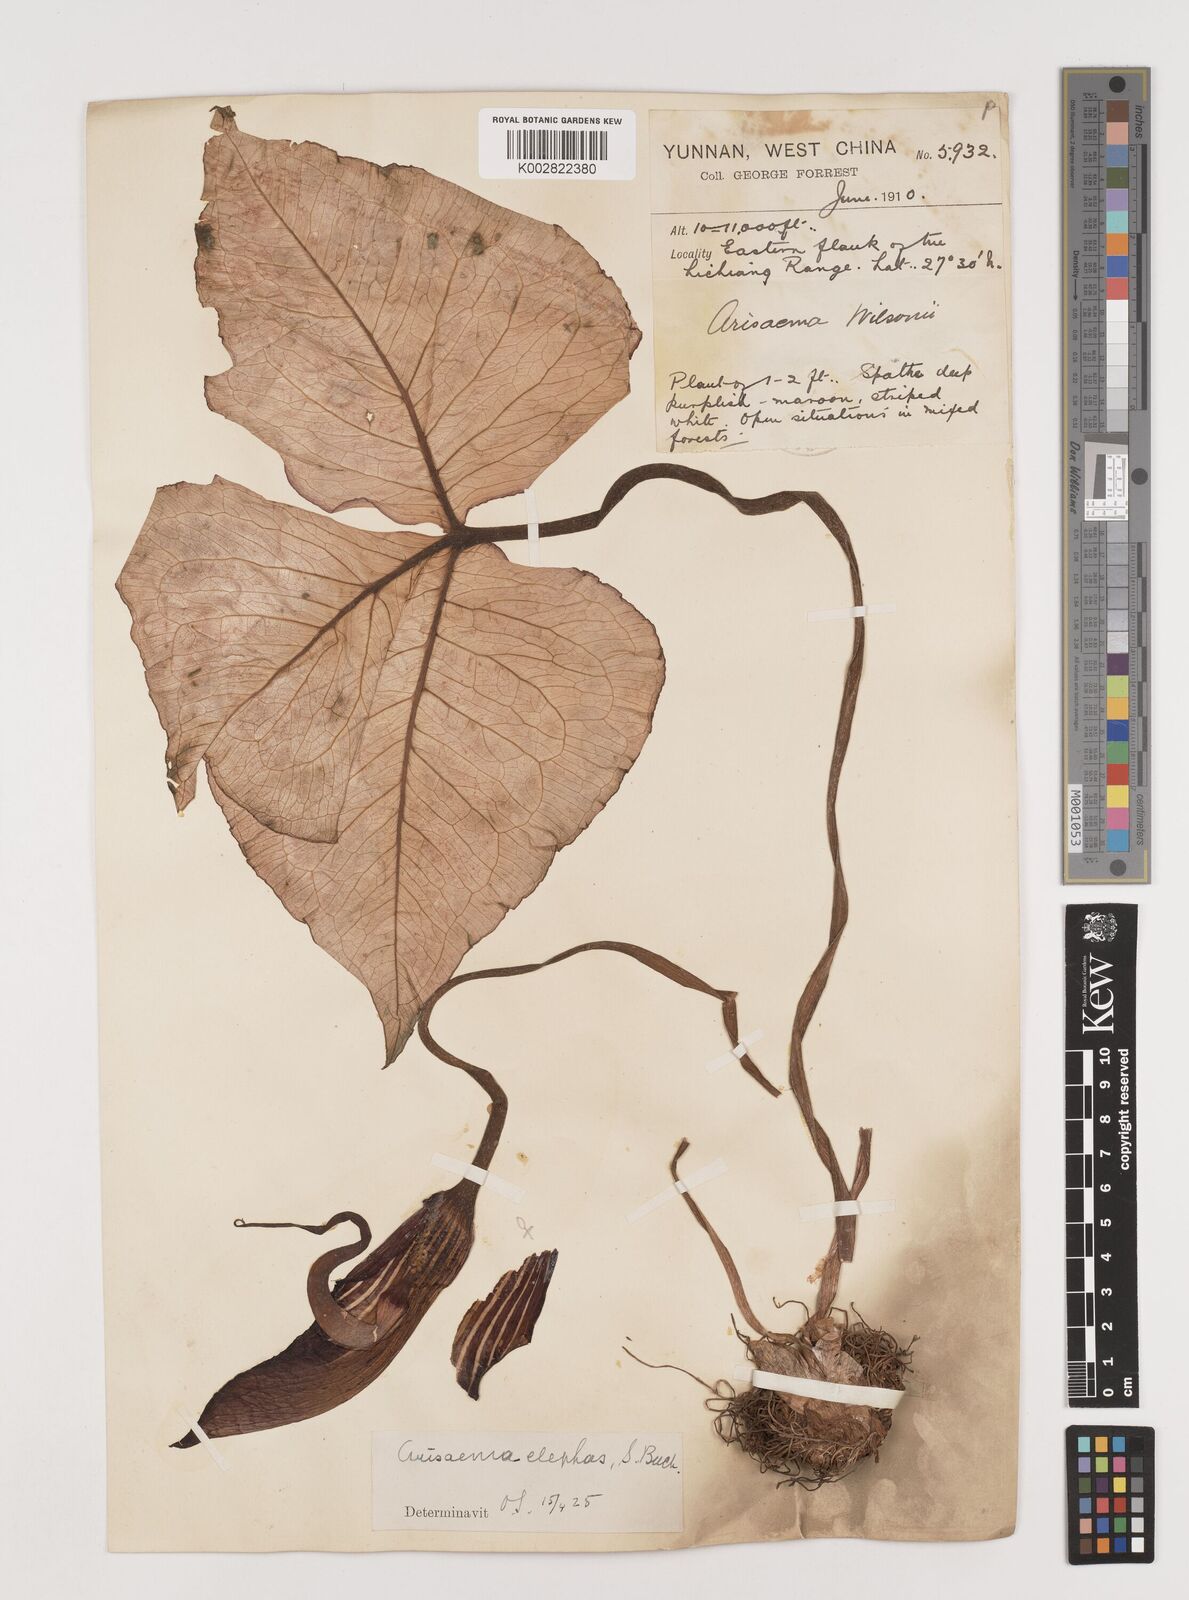 ROYAL BOTANIC GARDENS KEW
K002822380
P
YUNNAN, WEST CHINA No. 5,932.
Coll. GEORGE FORREST
June. 1910.
Alt. 10-11,000 ft..
Locality Eastern flank of the
Lichiang Range. Lat.. 27° 30' N.
Arisaema Wilsonii
Plant of 1-2 ft.. Spathe deep
purplish-maroon, striped
white. Open situations in mixed
forests.
Arisaema elephas, S. Buch.
Determinavit O.S. 15/4 25
inches
centimeters
Density
Don Williams
M001053
Kew
Royal Botanic Gardens
copyright reserved
0 1 2 3 4 5 6 7 8 9 10
cm